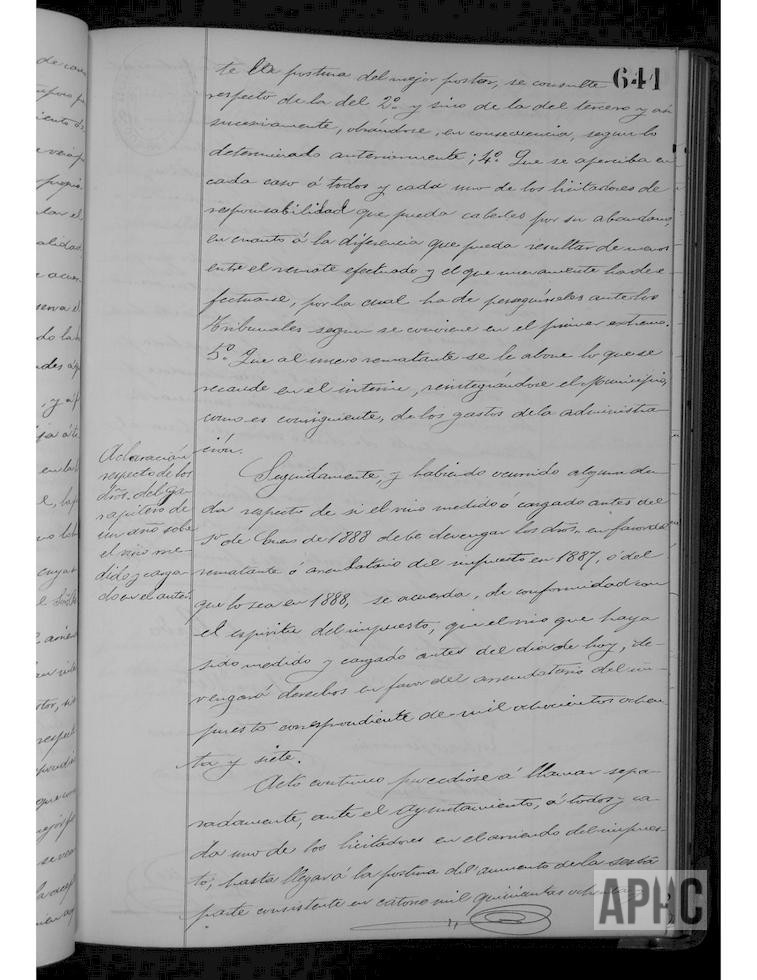 641
te la postura del mejor postor, se consulte
respecto de la del 2º y sino de la del tercero y así
sucesivamente, obrándose, en consecuencia, segun lo
determinado anteriormente; 4º Que se aperciba en
cada caso á todos y cada uno de los licitadores de
responsabilidad que pueda caberles por su abandono,
en cuanto á la diferencia que pueda resultar de menos
entre el remate efectuado y el que nuevamente ha de e-
fectuarse, por la cual ha de perseguírseles ante los
Tribunales segun se conviene en el primer extremo.
5º Que al nuevo rematante se le abone lo que se
recaude en el interin, reintegrándose el Municipio,
como es consiguiente, de los gastos de la administra-
ción.
Aclaración
respecto de los
dros. del
de
un año sobre
el vino me-
dido y carga-
do en el anter.
Seguidamente, y habiendo ocurrido alguna du-
da respecto de si el vino medido ó cargado antes del
1º de Enero de 1888 debe devengar los dros. en favor del
rematante ó arrendatario del impuesto en 1887, ó del
que lo sea en 1888, se acuerda, de conformidad con
el espíritu del impuesto, que el vino que haya
sido medido y cargado antes del dia de hoy, de-
vengará derechos en favor del arrendatario del im-
puesto correspondiente de mil ochocientos ochen
ta y siete.
Acto continuo procedióse á llamar sepa-
radamente, ante el Ayuntamiento, á todos y ca-
da uno de los licitadores en el arriendo del impues-
to, hasta llegar á la postura del aumento de la sexta
parte consistente en catorce mil quinientas ochenta y
APHC